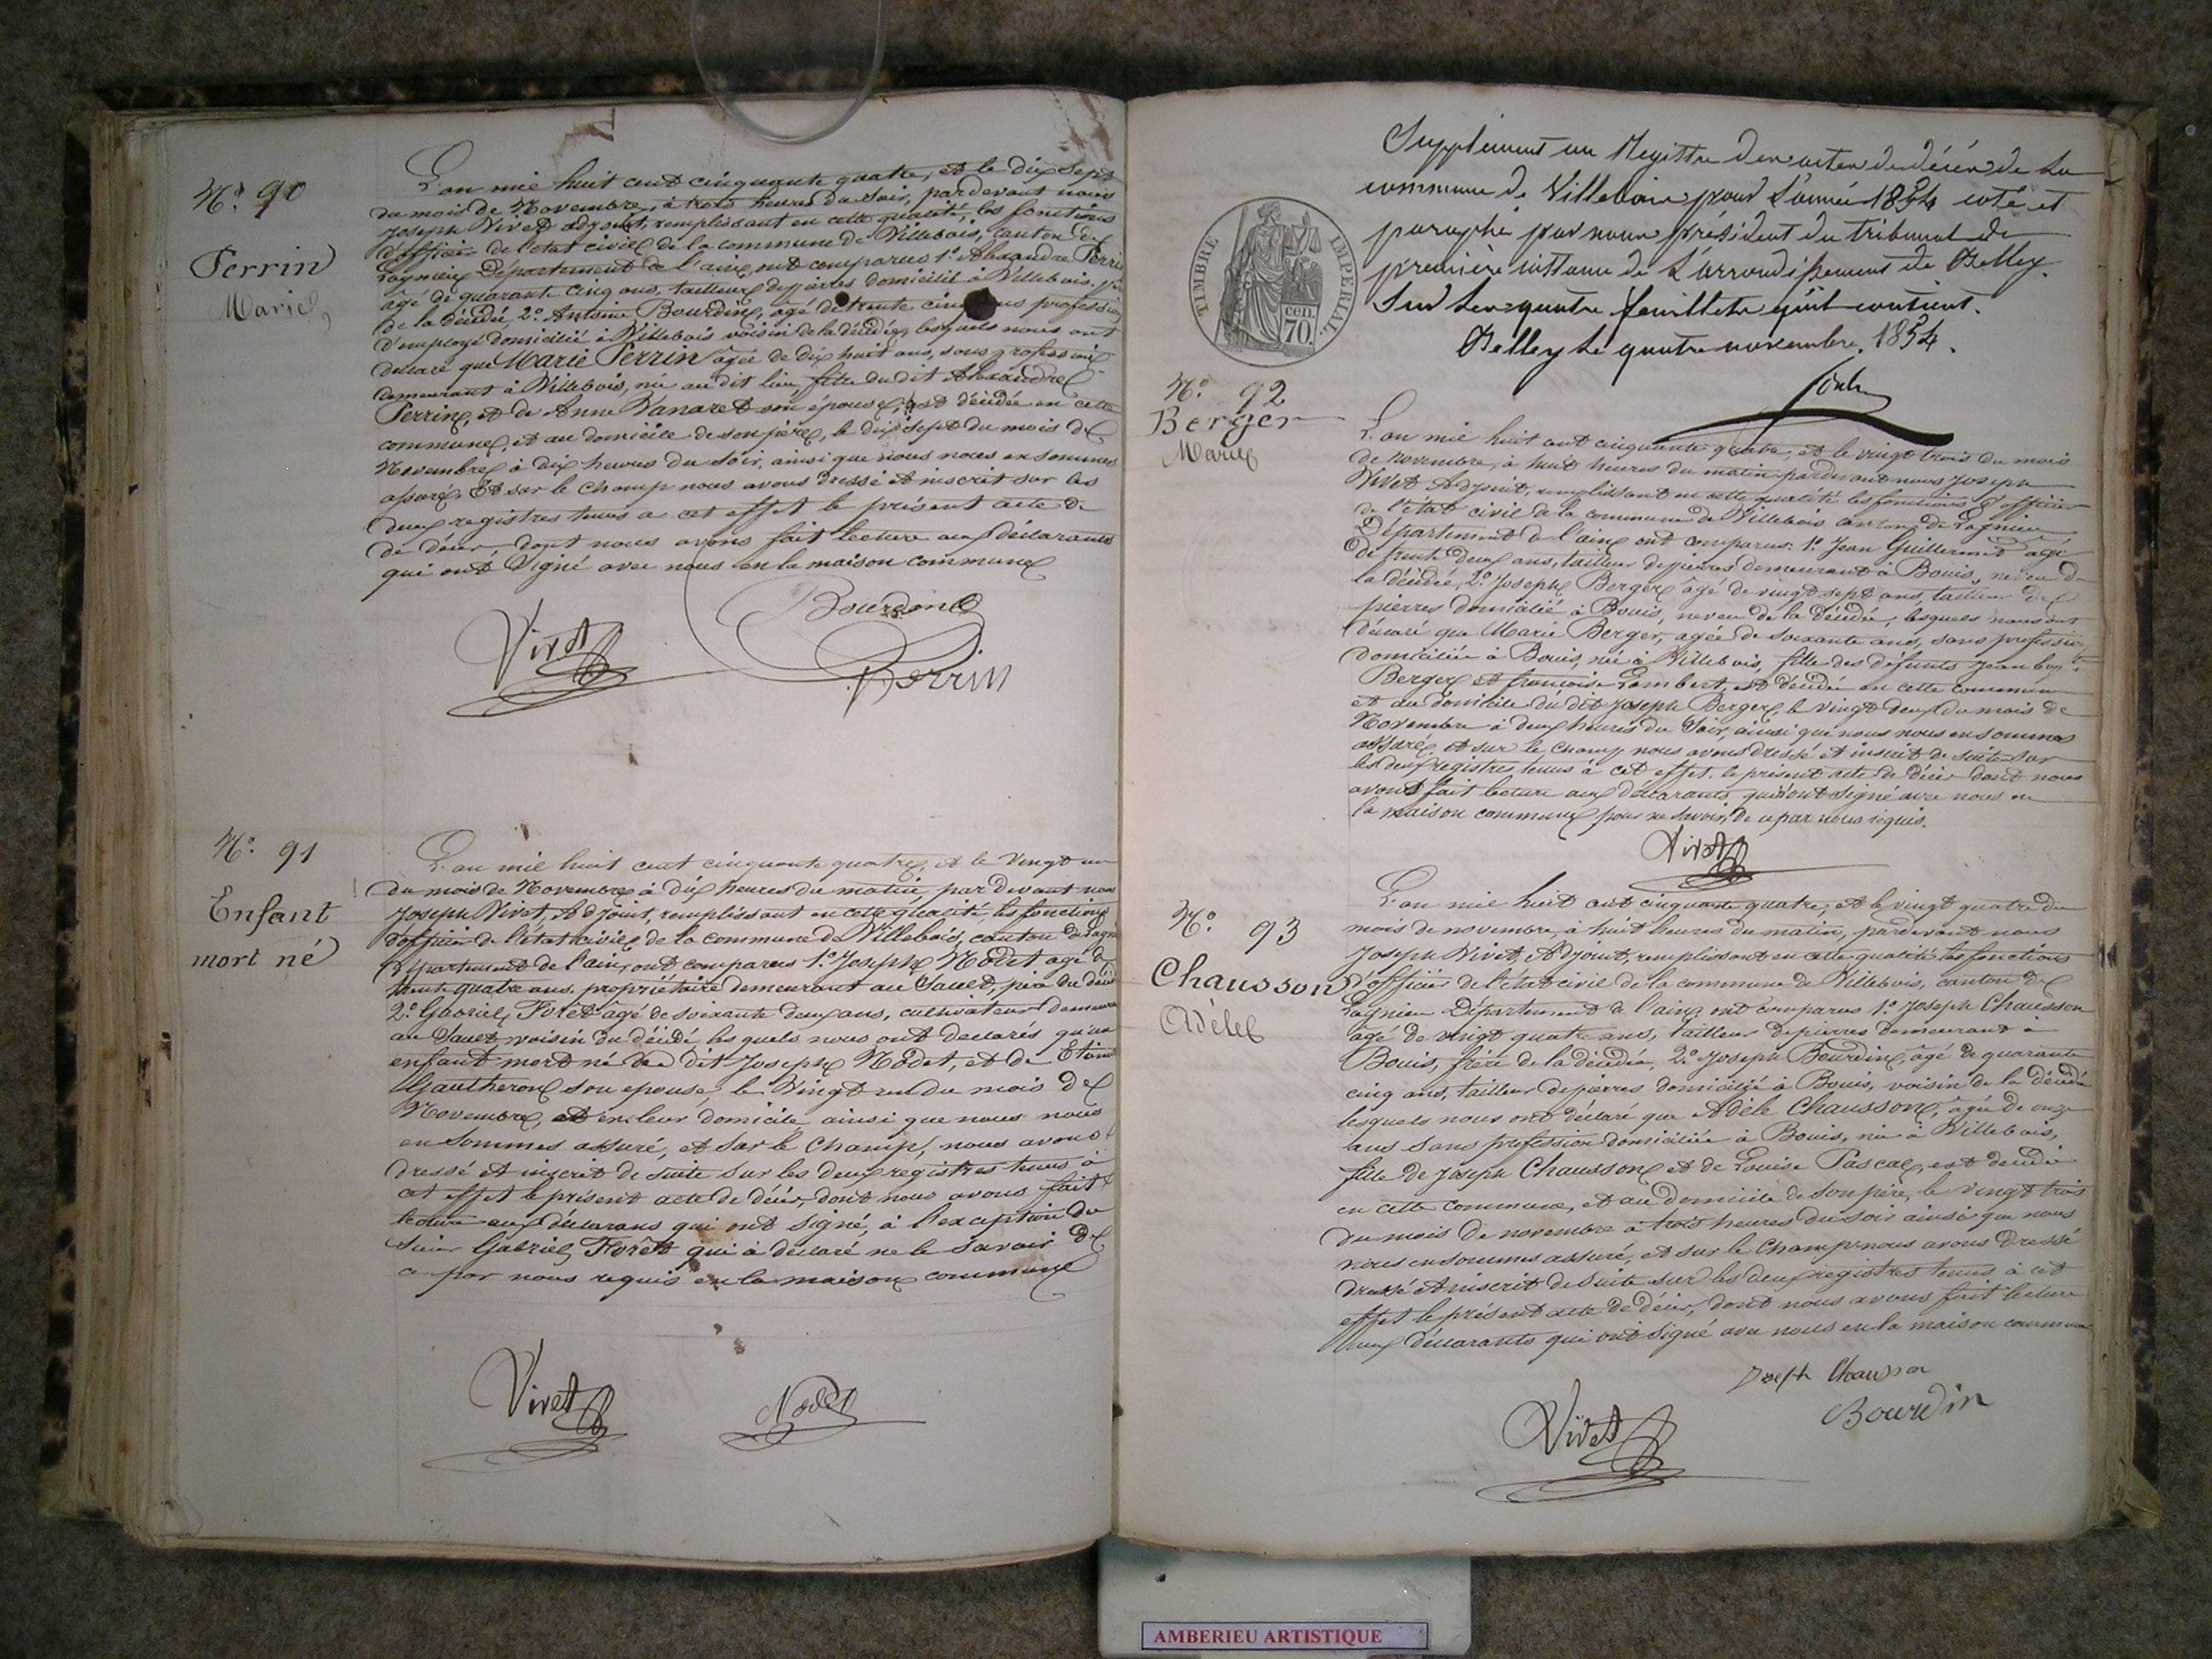 N.° 90
Perrin
Marie
L'an mil huit cent cinquante quatre, et le dix sept
du mois de Novembre, à trois heures du soir, pardevant nous
Joseph Vivet adjoint, remplissant en cette qualité, les fonctions
d'officier de l'état civil de la commune de Villebois, canton de
Lagnieu Département de l'ain, ont comparus 1.° Alexandre Perrin
âgé de quarante cinq ans, tailleur de pierres domicilié à Villebois,
de la décédée, 2.° Antoine Bourdin, âgé de trente cinq ans profession
d'employé domicilié à Villebois voisin de la décédée, lesquels nous ont
déclaré que Marie Perrin âgée de dix huit ans, sans profession
demeurant à Villebois, née au dit lieu, fille du dit Alexandre
Perrin, et de Anne Vanaret son épouse, est décédée en cette
commune, et au domicile de son père, le dix sept du mois de
Novembre à dix heures du soir, ainsi que nous nous en sommes
assuré, Et sur le champ nous avons dressé et inscrit sur les
deux registres tenus a cet effet le présent acte de
de décès, dont nous avons fait lecture aux déclarants
qui ont signé avec nous en la maison commune
Bourdin
Vivet
Perrin
N.° 91
Enfant
mort né
L'an mil huit cent cinquante quatre, et le vingt un
du mois de Novembre à dix heures du matin, par devant nous
Joseph Vivet, Adjoint, remplissant en cette qualité, les fonctions
d'officier de l'état civil de la commune de Villebois, canton de Lagnieu
Département de l'ain, ont comparus 1.° Joseph Nodet agé de
trente quatre ans, propriétaire demeurant au Sault, père du décédé
2.° Gabriel, Forêt âgé de soixante deux ans, cultivateur demeurant
au Sault voisin du décédé lesquels nous ont declarés qu'un
enfant mort né du dit Joseph Nodet, et de
Gautheron son epouse, le vingt un du mois de
Novembre, et en leur domicile ainsi que nous nous
en sommes assuré, et sur le champ, nous avons
dressé et inscrit de suite sur les deux registres tenus à
cet effet le présent acte de décès, dont nous avons fait
lecture aux déclarans qui ont signé, à l'exception du
sieur Gabriel, Forêt qui à déclaré ne le savoir de
ce par nous requis en la maison commune
Vivet
Nodet
Supplément au Registre des actes de décès de la
commune de Villebois pour l'année 1854 coté et
paraphé par nous président du tribunal de
première instance de l'arrondissement de Belley
Sur les quatre feuillets qu'il contient.
Belley le quatre novembre 1854.
TIMBRE IMPERIAL
70 cen.
N.° 92
Berger
Marie
L'an mil huit cent cinquante quatre, et le vingt trois du mois
de novembre, à huit heures du matin pardevant nous Joseph
Vivet Adjoint, remplissant en cette qualité les fonctions d'officier
de l'état civil de la commune de Villebois canton de Lagnieu
Département de l'ain, ont comparus: 1.° Jean Guillermet âgé
de trente deux ans, tailleur de pierres demeurant à Bouis, neveu de
la décédée, 2.° Joseph Berger âgé de vingt sept ans, tailleur de
pierres domicilié à Bouis, neveu de la décédée, lesquels nous ont
déclaré que Marie Berger, agée de soixante ans, sans profession
domiciliée à Bouis, née à Villebois, fille des défunts Jean bapt.
Berger et francoise Lambert, est décédée en cette commune
et au domicile du dit Joseph Berger, le vingt deux du mois de
Novembre à deux heures du soir, ainsi que nous nous en sommes
assuré, et sur le champ nous avons dressé et inscrit de suite sur
les deux registres tenus à cet effet, le présent acte de décès dont nous
avons fait lecture aux déclarants, qui ont signé avec nous en
la maison commune pour ne savoir, de ce par nous requis.
Vivet
N.° 93
Chausson
Adèle
L'an mil huit cent cinquante quatre, et le vingt quatre du
mois de novembre, à huit heures du matin, pardevant nous
Joseph Vivet, Adjoint, remplissant en cette qualité les fonctions
d'officier de l'état civil de la commune de Villebois, canton de
Lagnieu Département de l'ain, ont comparus 1.° Joseph Chausson
âgé de vingt quatre ans, tailleur de pierres demeurant a
Bouis, frère de la décédée, 2.° Joseph Bourdin, âgé de quarante
cinq ans, tailleur de pierres domicilié à Bouis, voisin de la décédée
lesquels nous ont déclaré que Adèle Chausson, âgée de onze
ans sans profession domiciliée à Bouis, née à Villebois,
fille de Joseph Chausson, et de Louise Pascal, est décédée
en cette commune, et au domicile de son père, le vingt trois
du mois de novembre à trois heures du soir ainsi que nous
nous en sommes assuré, et sur le champ nous avons dressé
dressé et inscrit de suite sur les deux registres tenus à cet
effet le présent acte de décès, dont nous avons fait lecture
aux déclarants qui ont signé avec nous en la maison commune
Joseph Chausson
Bourdin
Vivet
AMBERIEU ARTISTIQUE